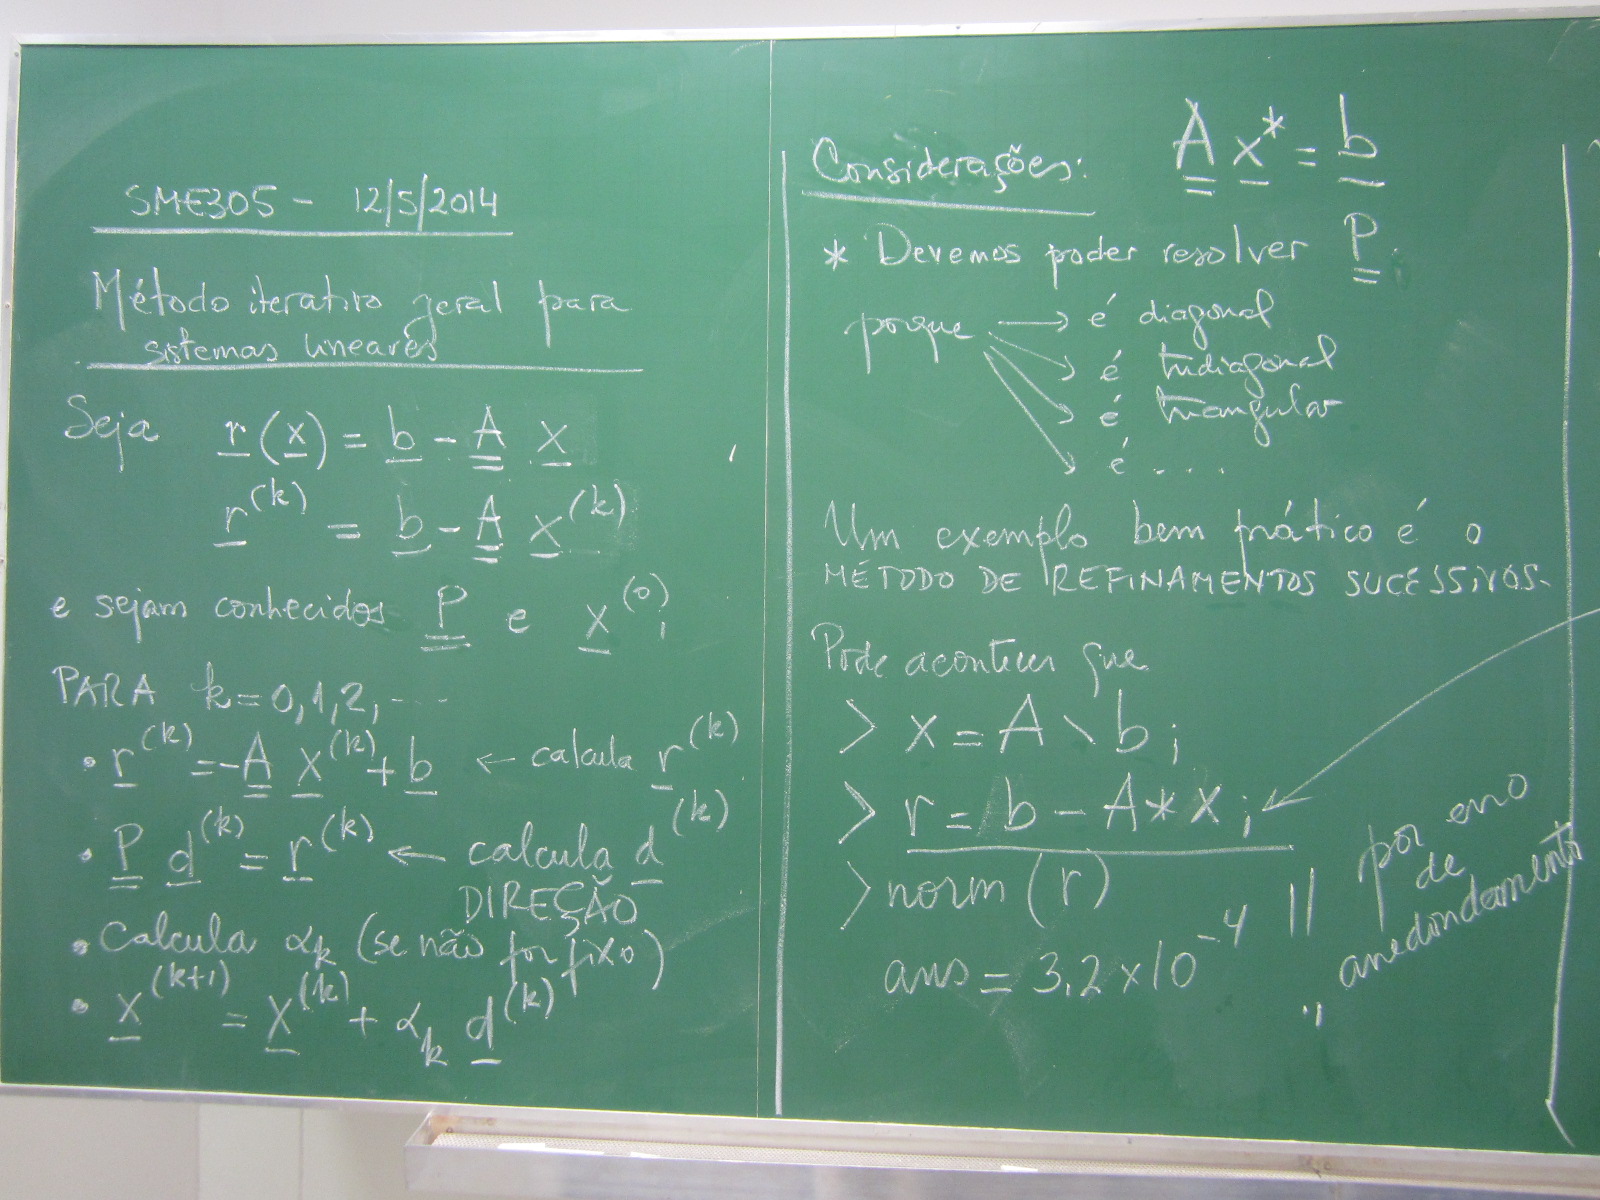 SME305 - 12/5/2014
Método iterativo geral para
sistemas lineares
Seja r(x) = b - A x
r^(k) = b - A x^(k)
e sejam conhecidos P e x^(0);
PARA k=0,1,2,...
• r^(k) = -A x^(k) + b ← calcula r^(k)
• P d^(k) = r^(k) ← calcula d^(k)
DIREÇÃO
• Calcula α_k (se não for fixo)
• x^(k+1) = x^(k) + α_k d^(k)
Considerações: A x* = b
* Devemos poder resolver P.
porque → é diagonal
→ é tridiagonal
→ é triangular
→ é ....
Um exemplo bem prático é o
MÉTODO DE REFINAMENTOS SUCESSIVOS.
Pode acontecer que
> x = A \ b;
> r = b - A * x;
> norm(r)
ans = 3.2 x 10^-4
|| por erro
de
arredondamento